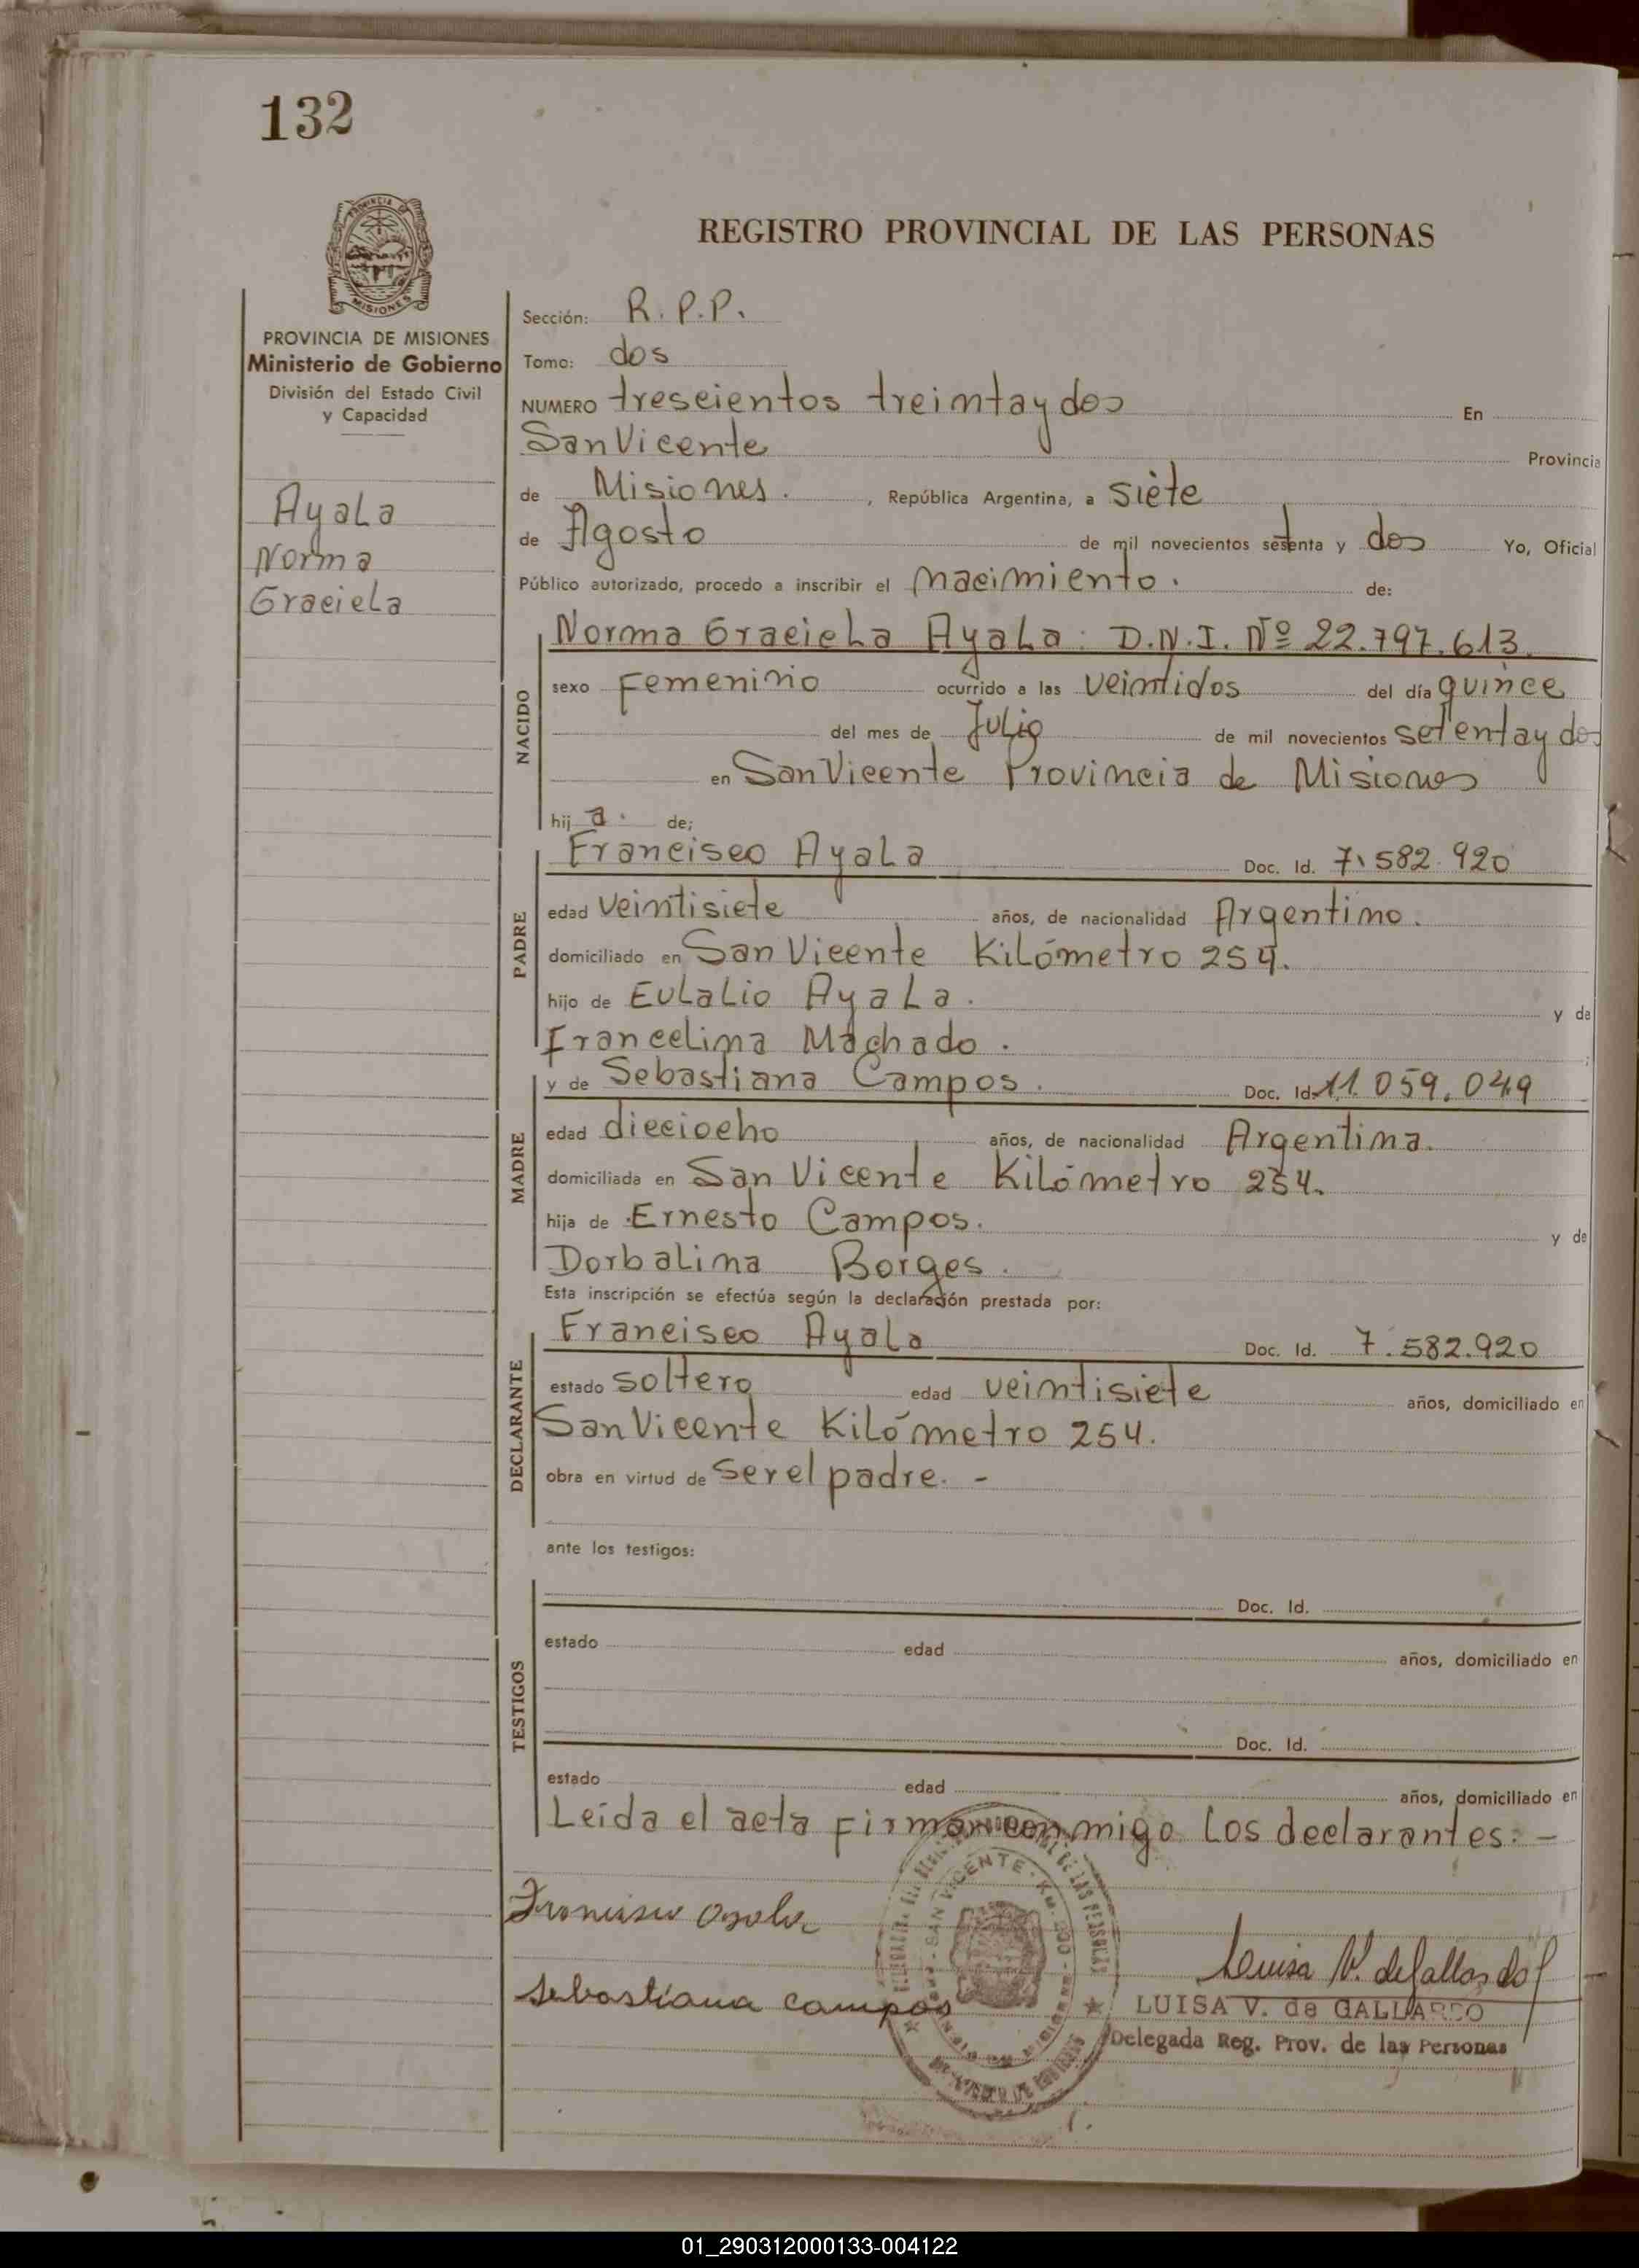 132
PROVINCIA DE
MISIONES
REGISTRO PROVINCIAL DE LAS PERSONAS
PROVINCIA DE MISIONES
Ministerio de Gobierno
División del Estado Civil
y Capacidad
Ayala
Norma
Graciela
Sección: R. P. P.
Tomo: dos
NUMERO trescientos treinta y dos En
San Vicente Provincia
de Misiones. , República Argentina, a siete
de Agosto de mil novecientos setenta y dos Yo, Oficial
Público autorizado, procedo a inscribir el nacimiento. de:
NACIDO
Norma Graciela Ayala. D.N.I. Nº 22.797.613.
sexo Femenino ocurrido a las veintidos del día quince
del mes de Julio de mil novecientos setenta y dos
en San Vicente Provincia de Misiones
hij a. de;
PADRE
Francisco Ayala Doc. Id. 7.582.920
edad veintisiete años, de nacionalidad Argentino.
domiciliado en San Vicente Kilómetro 254.
hijo de Eulalio Ayala. y de
Francelina Machado.
MADRE
y de Sebastiana Campos. Doc. Id. 11.059.049
edad dieciocho años, de nacionalidad Argentina.
domiciliada en San Vicente Kilómetro 254.
hija de Ernesto Campos. y de
Dorbalina Borges.
Esta inscripción se efectúa según la declaración prestada por:
DECLARANTE
Francisco Ayala Doc. Id. 7.582.920
estado soltero edad veintisiete años, domiciliado en
San Vicente Kilómetro 254.
obra en virtud de ser el padre. -
ante los testigos:
TESTIGOS
Doc. Id.
estado edad años, domiciliado en
Doc. Id.
estado edad años, domiciliado en
Leída el acta firman conmigo los declarantes. -
DE LAS PERSONAS
SAN VICENTE - Km.
Francisco Ayala
Sebastiana Campos
Luisa V. de Gallardo
LUISA V. de GALLARDO
Delegada Reg. Prov. de las Personas
01_290312000133-004122